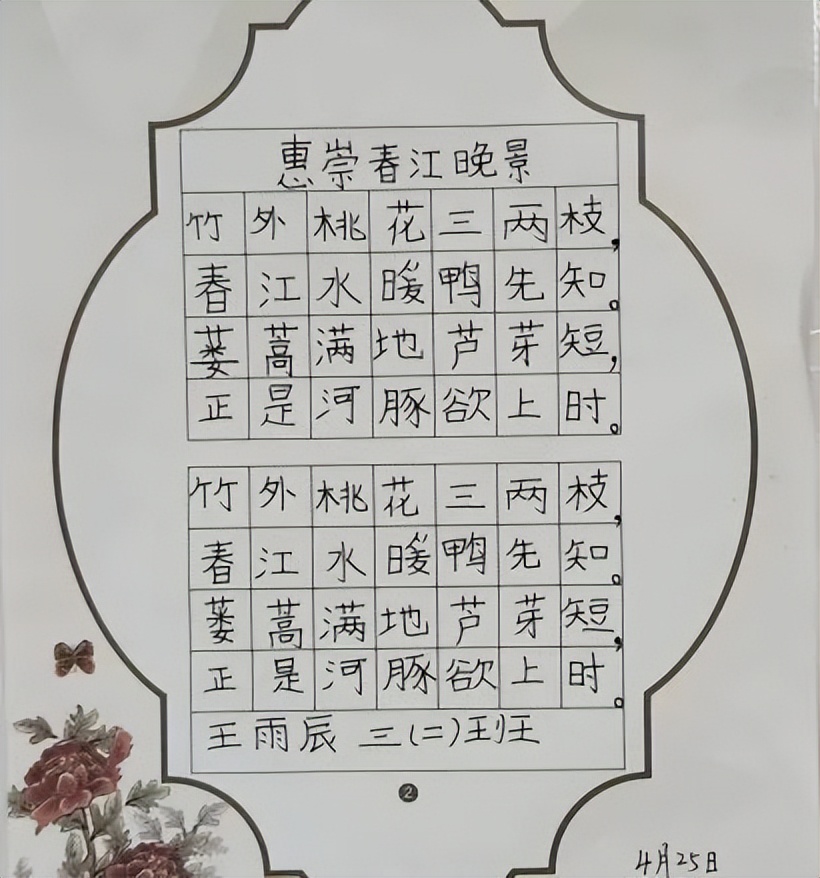 惠崇春江晚景
竹外桃花三两枝，
春江水暖鸭先知。
蒌蒿满地芦芽短，
正是河豚欲上时。
竹外桃花三两枝，
春江水暖鸭先知。
蒌蒿满地芦芽短，
正是河豚欲上时。
王雨辰 三(二)班
2
4月25日